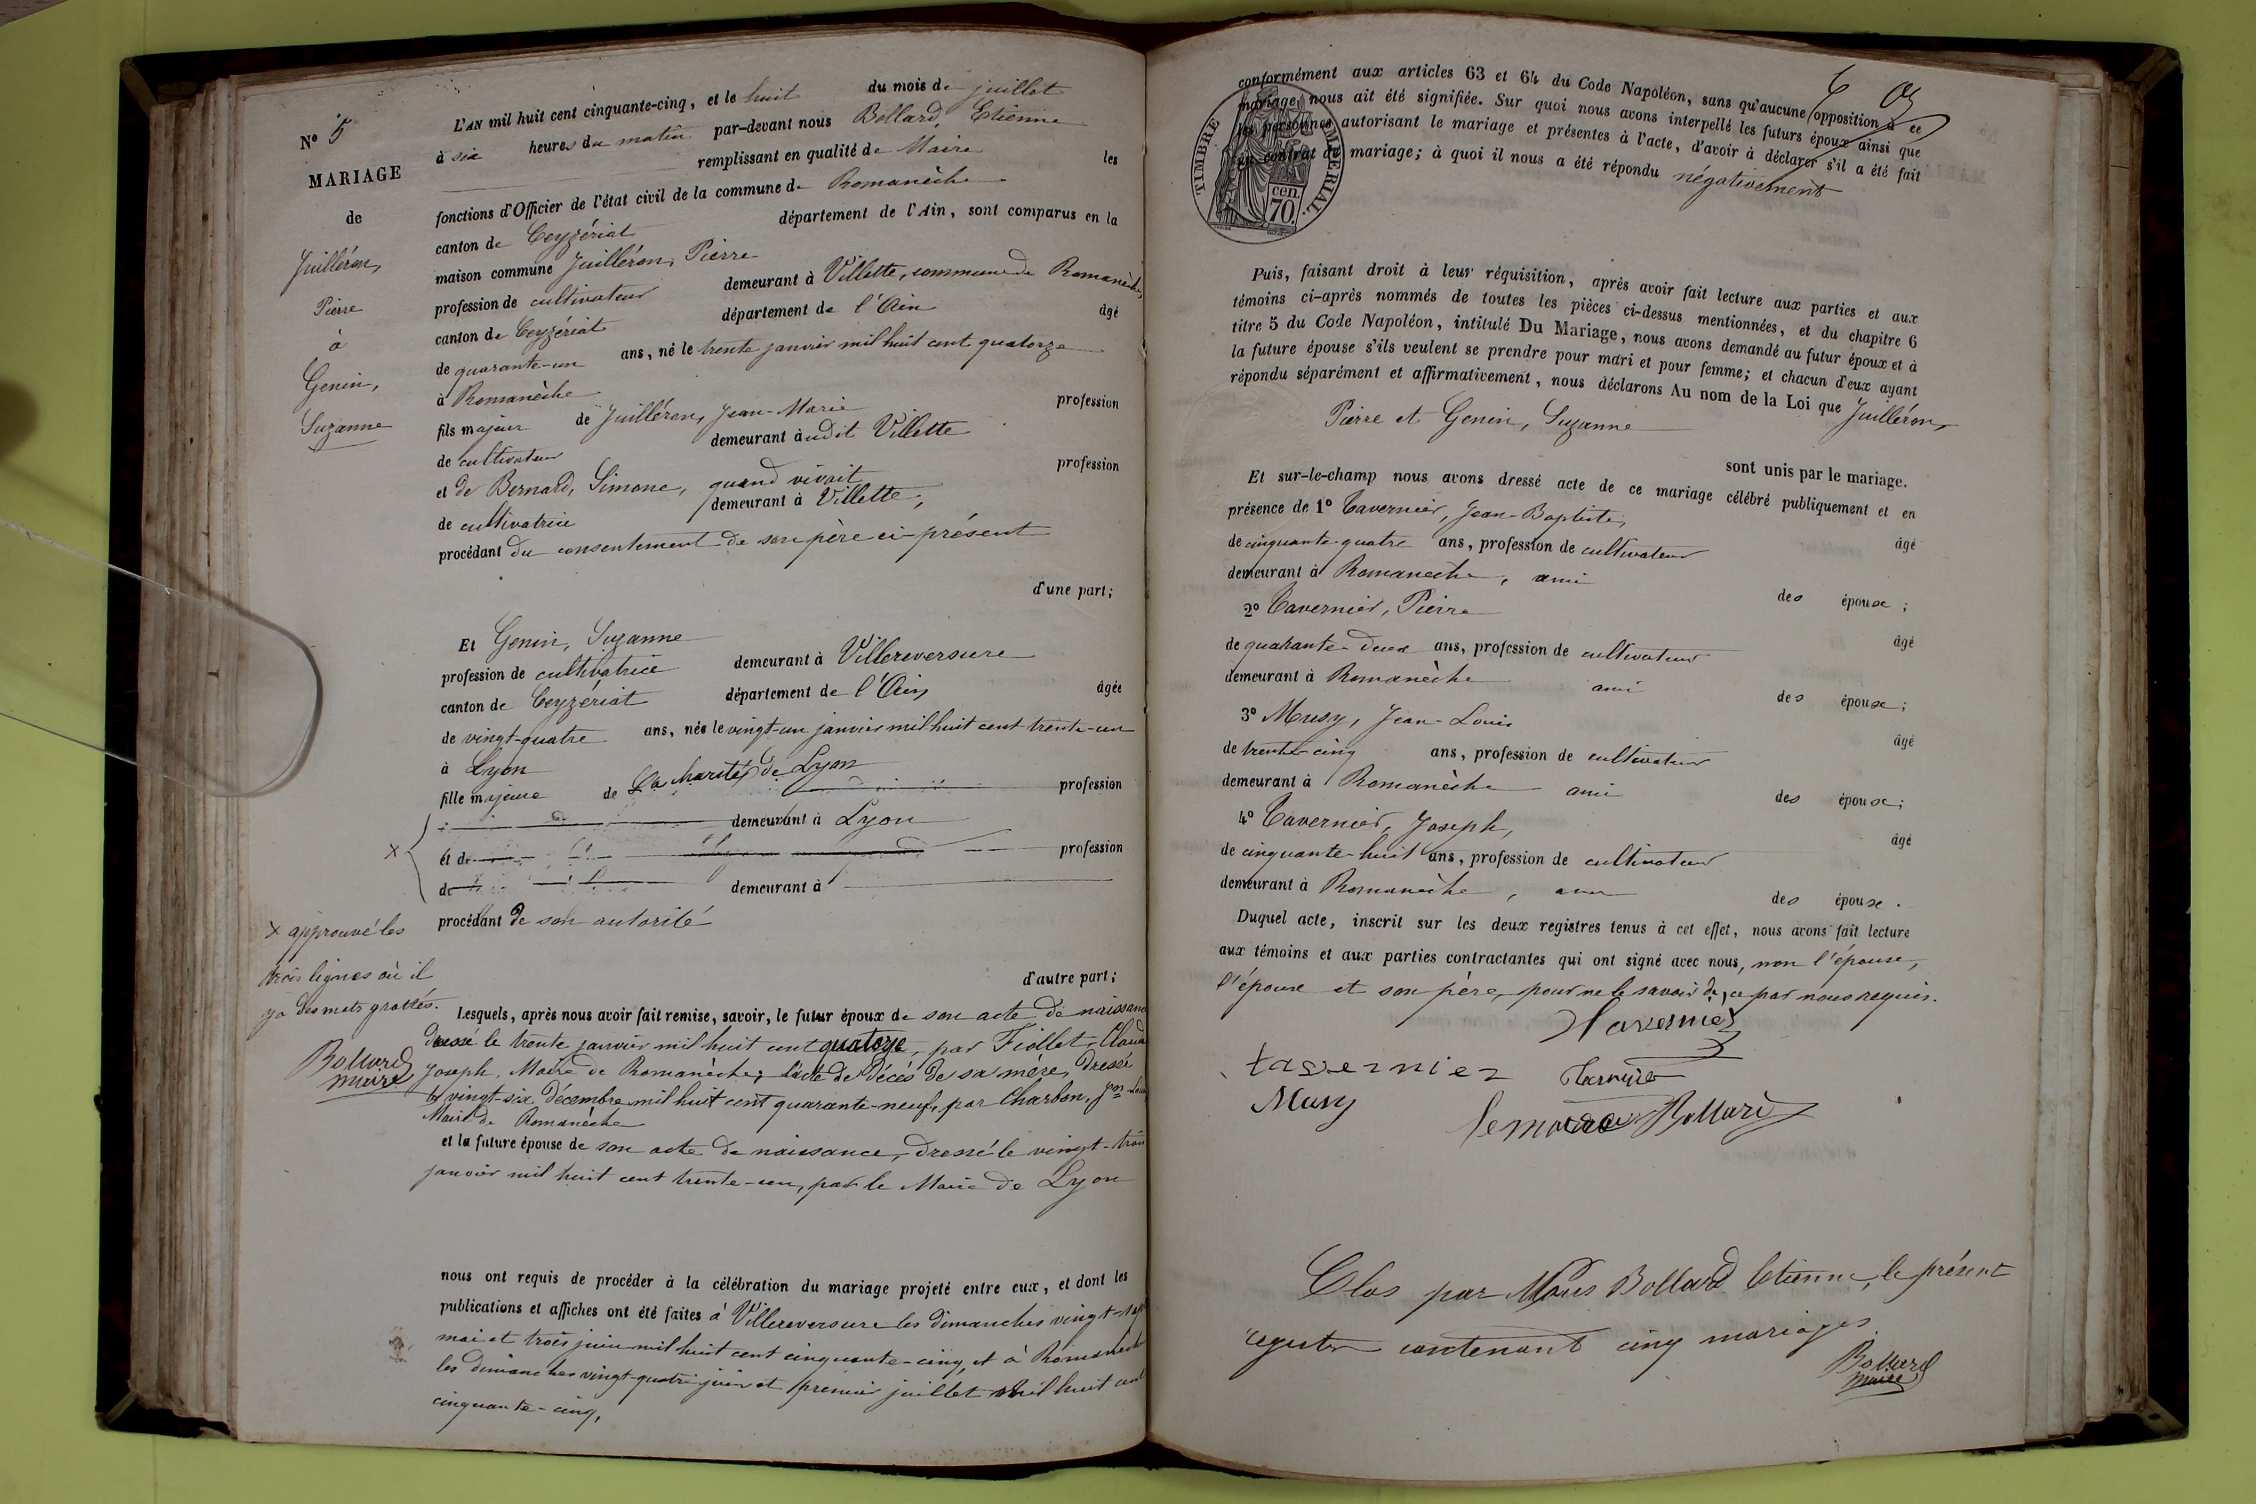 N° 5
MARIAGE
de
Juilléron,
Pierre
à
Genin,
Suzanne
L'AN mil huit cent cinquante-cinq, et le huit du mois de juillet
à six heures du matin par-devant nous Bollard, Etienne
remplissant en qualité de Maire les
fonctions d'Officier de l'état civil de la commune de Romanèche
canton de Ceyzériat département de l'Ain, sont comparus en la
maison commune Juilléron, Pierre
profession de cultivateur demeurant à Villette, commune de Romanèche,
canton de Ceyzériat département de l'Ain âgé
de quarante-un ans, né le trente janvier mil huit cent quatorze
à Romanèche
fils majeur de Juilléron, Jean-Marie profession
de cultivateur demeurant audit Villette
et de Bernard, Simone, quand vivait profession
de cultivatrice demeurant à Villette,
procédant du consentement de son père ci-présent
d'une part;
Et Genin, Suzanne
profession de cultivatrice demeurant à Villereversure
canton de Ceyzériat département de l'Ain âgée
de vingt-quatre ans, née le vingt-un janvier mil huit cent trente-un
à Lyon
fille majeure de La charité de Lyon profession
demeurant à Lyon
x et de profession
de demeurant à
procédant de son autorité
x approuvé les
trois lignes où il
y a des mots grattés.
Bollard
maire
d'autre part;
Lesquels, après nous avoir fait remise, savoir, le futur époux de son acte de naissance
dressé le trente janvier mil huit cent quatorze, par Fiollet, Claude
Joseph, Maire de Romanèche; l'acte de décès de sa mère, dressé
le vingt-six décembre mil huit cent quarante-neuf, par Charbon, Jean Louis
Maire de Romanèche
et la future épouse de son acte de naissance, dressé le vingt-trois
janvier mil huit cent trente-un, par le Maire de Lyon
nous ont requis de procéder à la célébration du mariage projeté entre eux, et dont les
publications et affiches ont été faites à Villereversure les dimanches vingt-sept
mai et trois juin mil huit cent cinquante-cinq, et à Romanèche
les dimanches vingt-quatre juin et premier juillet mil huit cent
cinquante-cinq,
TIMBRE IMPERIAL.
70 cen.
conformément aux articles 63 et 64 du Code Napoléon, sans qu'aucune opposition à ce
mariage nous ait été signifiée. Sur quoi nous avons interpellé les futurs époux ainsi que
les personnes autorisant le mariage et présentes à l'acte, d'avoir à déclarer s'il a été fait
un contrat de mariage; à quoi il nous a été répondu négativement
Puis, faisant droit à leur réquisition, après avoir fait lecture aux parties et aux
témoins ci-après nommés de toutes les pièces ci-dessus mentionnées, et du chapitre 6
titre 5 du Code Napoléon, intitulé Du Mariage, nous avons demandé au futur époux et à
la future épouse s'ils veulent se prendre pour mari et pour femme; et chacun d'eux ayant
répondu séparément et affirmativement, nous déclarons Au nom de la Loi que Juilléron,
Pierre et Genin, Suzanne
sont unis par le mariage.
Et sur-le-champ nous avons dressé acte de ce mariage célébré publiquement et en
présence de 1° Tavernier, Jean-Baptiste,
de cinquante-quatre ans, profession de cultivateur âgé
demeurant à Romanèche, ami
des épouse;
2° Tavernier, Pierre
de quarante-deux ans, profession de cultivateur âgé
demeurant à Romanèche ami des épouse;
3° Musy, Jean-Louis
de trente-cinq ans, profession de cultivateur âgé
demeurant à Romanèche ami des épouse;
4° Tavernier, Joseph,
de cinquante-huit ans, profession de cultivateur âgé
demeurant à Romanèche, ami des épouse.
Duquel acte, inscrit sur les deux registres tenus à cet effet, nous avons fait lecture
aux témoins et aux parties contractantes qui ont signé avec nous, non l'épouse,
l'époux et son père, pour ne le savoir de ce par nous requis.
Tavernier
tavernier
Musy
le maire Bollard
Clos par Nous Bollard Etienne, le présent
registre contenant cinq mariages
Bollard
maire